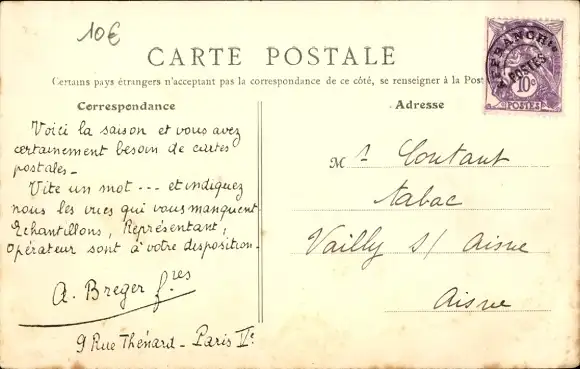 10€
CARTE POSTALE
Certains pays étrangers n'acceptant pas la correspondance de ce côté, se renseigner à la Post
Correspondance
Voici la saison et vous avez
certainement besoin de cartes
postales_
Vite un mot --- et indiquez
nous les vues qui vous manquent
Echantillons, Représentant,
Opérateur sont à votre disposition_
A. Breger fres
9 Rue Thénard_ Paris Ve
Adresse
AFFRANCHts
POSTES
10c
POSTES
Mr Coutant
tabac
Vailly s/ Aisne
Aisne